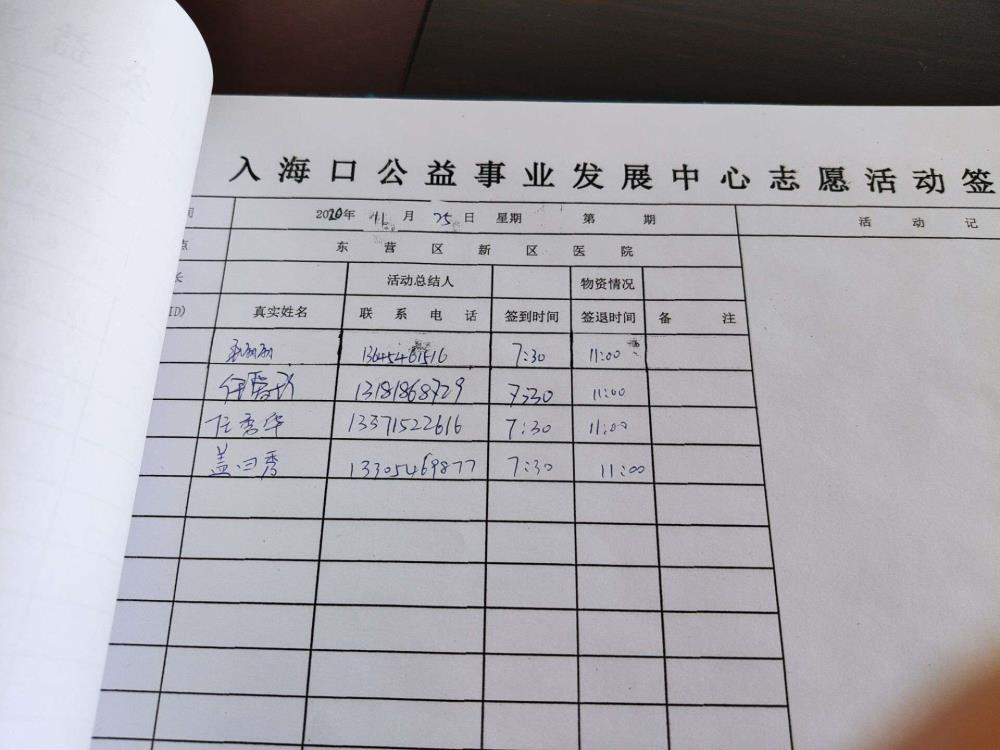 入海口公益事业发展中心志愿活动签
间 2020年 11 月 25 日 星期 第 期 活动记
点 东营区新区医院
长 活动总结人 物资情况
ID) 真实姓名 联系电话 签到时间 签退时间 备注
13645461516 7:30 11:00
13181868729 7:30 11:00
任秀华 13371522616 7:30 11:00
盖曰秀 13305469877 7:30 11:00